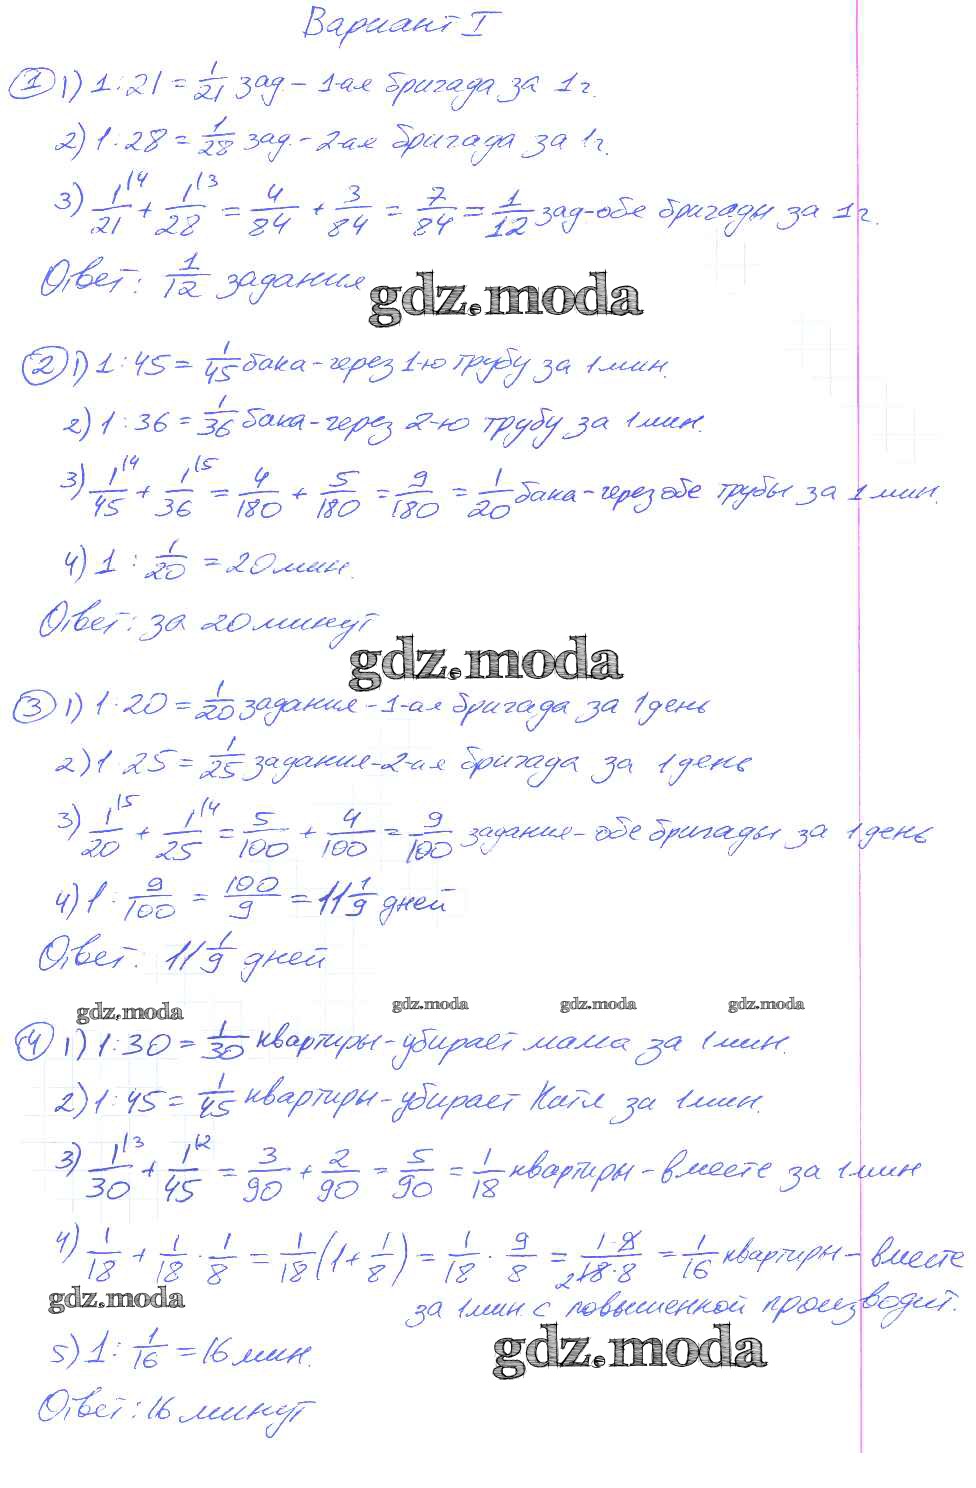 Вариант I
① 1) 1:21 = 1/21 зад – 1-ая бригада за 1 г.
2) 1:28 = 1/28 зад. – 2-ая бригада за 1 г.
3) 1/21 |4 + 1/28 |3 = 4/84 + 3/84 = 7/84 = 1/12 зад – обе бригады за 1 г.
Ответ: 1/12 задания
gdz.moda
② 1) 1:45 = 1/45 бака – через 1-ю трубу за 1 мин.
2) 1:36 = 1/36 бака – через 2-ю трубу за 1 мин.
3) 1/45 |4 + 1/36 |5 = 4/180 + 5/180 = 9/180 = 1/20 бака – через обе трубы за 1 мин.
4) 1 : 1/20 = 20 мин.
Ответ: за 20 минут
gdz.moda
③ 1) 1:20 = 1/20 задания – 1-ая бригада за 1 день
2) 1:25 = 1/25 задания – 2-ая бригада за 1 день
3) 1/20 |5 + 1/25 |4 = 5/100 + 4/100 = 9/100 задания – обе бригады за 1 день
4) 1 : 9/100 = 100/9 = 11 1/9 дней
Ответ: 11 1/9 дней
gdz.moda gdz.moda gdz.moda gdz.moda
④ 1) 1:30 = 1/30 квартиры – убирает мама за 1 мин.
2) 1:45 = 1/45 квартиры – убирает Катя за 1 мин.
3) 1/30 |3 + 1/45 |2 = 3/90 + 2/90 = 5/90 = 1/18 квартиры – вместе за 1 мин
4) 1/18 + 1/18 · 1/8 = 1/18 (1 + 1/8) = 1/18 · 9/8 = 1·9/2 18·8 = 1/16 квартиры – вместе
gdz.moda
за 1 мин. с повышенной производит.
5) 1 : 1/16 = 16 мин.
gdz.moda
Ответ: 16 минут